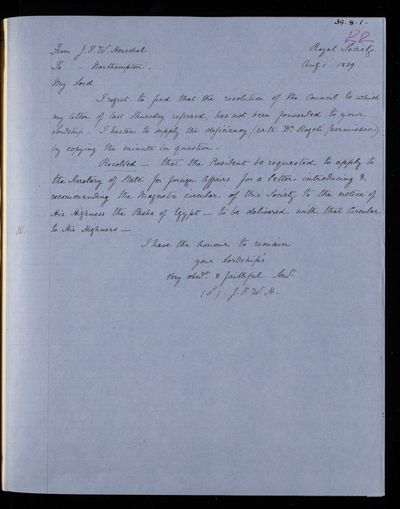 39.8.1.
22
From J. F. W. Herschel. Royal Society
To - Northampton. Aug 1 1839
My Lord
I regret to find that the resolution of the Council to which
my letter of last Thursday referred, has not been forwarded to your
Lordship - I hasten to supply the deficiency (with Dr. Rogets permission)
by copying the minute in question -
Resolved - that the President be requested to apply to
the Secretary of State for foreign Affairs for a letter introducing &
recommending the Magnetic circular of this Society to the notice of
His Highness the Pasha of Egypt - to be delivered with that Circular
to His Highness -
I have the honour to remain
your Lordship's
Very obedt. & faithful Servt.
(sd) J. F. W. H.